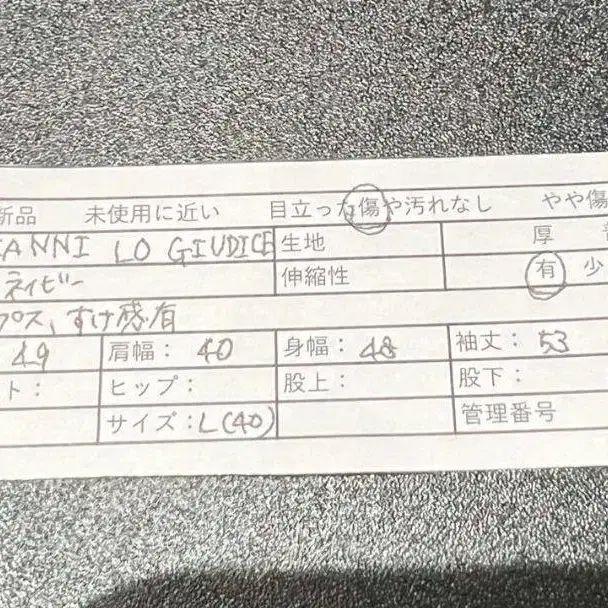 新品 未使用に近い 目立った傷や汚れなし やや傷
IANNI LO GIUDICE 生地 厚
ネイビー 伸縮性 有 少
プス、すけ感有
49 肩幅: 40 身幅: 48 袖丈: 53
ト: ヒップ: 股上: 股下:
サイズ: L(40) 管理番号